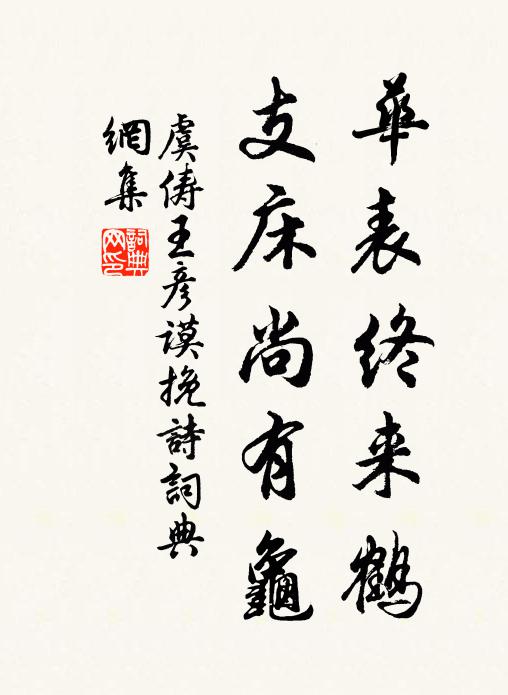 華表終来鶴
支床尚有龜
虞儔王彦謨挽詩詞典
網集
詞典
网印